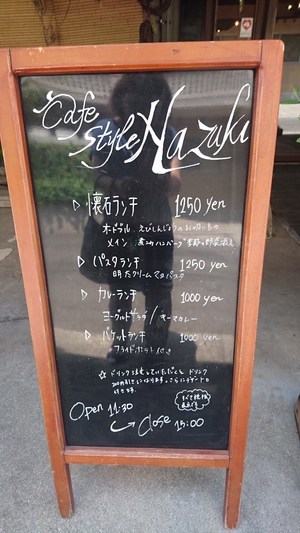 Cafe
Style Hazuki
▷ 懐石ランチ 1250 yen
オードブル えびしんじょうのお吸いもの
メイン 煮込みハンバーグ 季節の野菜添え
▷ パスタランチ 1250 yen
明太クリームパスタ
▷ カレーランチ 1000 yen
ヨーグルトサラダ / キーマカレー
▷ バケットランチ 1000 yen
フライドポテト付き
☆ ドリンク
Open 11:30
すべて税抜
Close 15:00